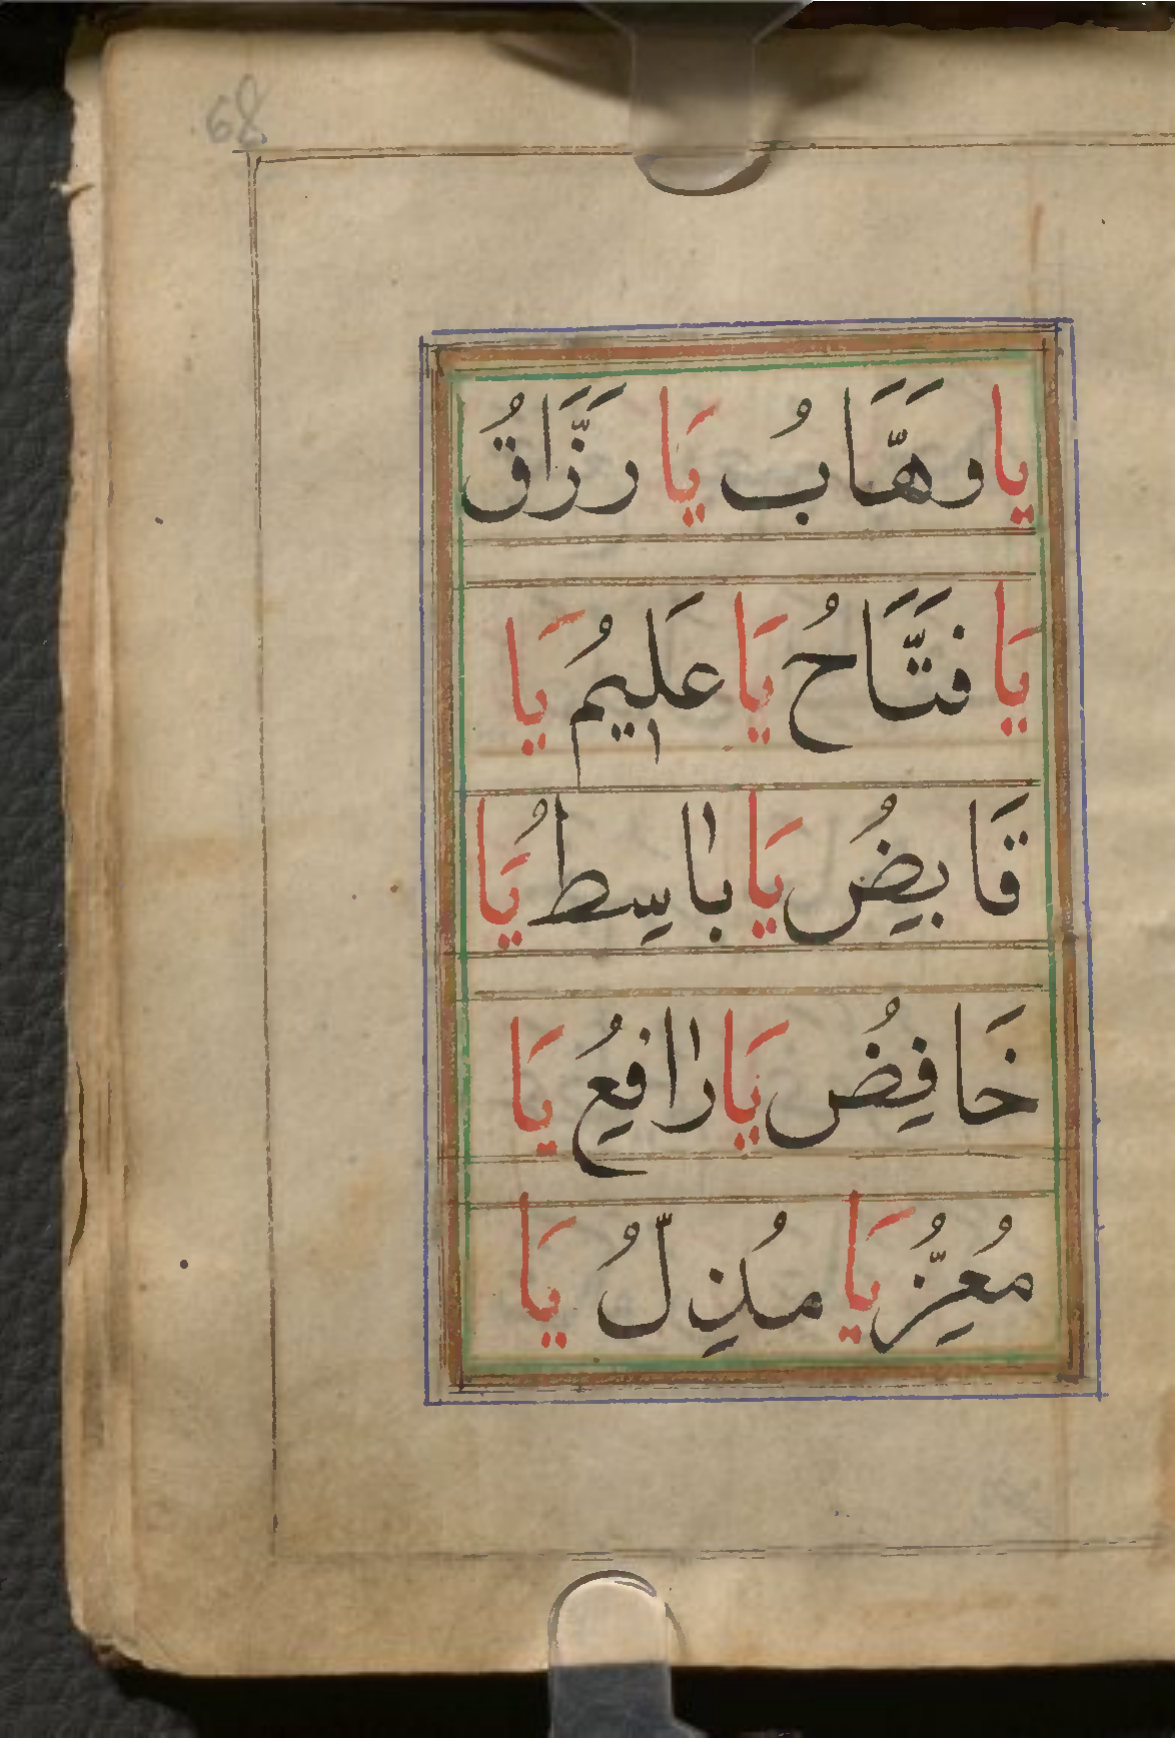 68
يا وَهَّابُ يَا رَزَّاقُ
يَا فَتَّاحُ يَا عَلِيمُ يَا
قَابِضُ يَا بَاسِطُ يَا
خَافِضُ يَا رَافِعُ يَا
مُعِزُّ يَا مُذِلُّ يَا